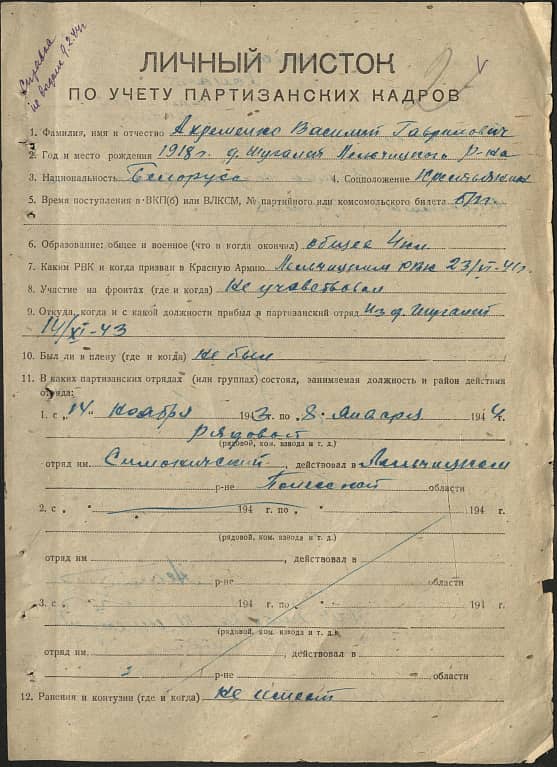 Справка
не выдана 9.2.44г
ЛИЧНЫЙ ЛИСТОК
ПО УЧЕТУ ПАРТИЗАНСКИХ КАДРОВ
1. Фамилия, имя и отчество Ахременко Василий Гаврилович
2. Год и место рождения 1918г. д. Шугалей Лельчицкого р-на
3. Национальность Белорус 4. Соцположение Крестьянин
5. Время поступления в ВКП(б) или ВЛКСМ, № партийного или комсомольского билета б/п.
6. Образование: общее и военное (что и когда окончил) общее 4кл
7. Каким РВК и когда призван в Красную Армию Лельчицким РВК 23/VI-41г.
8. Участие на фронтах (где и когда) Не участвовал
9. Откуда, когда и с какой должности прибыл в партизанский отряд из д. Шугалей
14/XI-43
10. Был ли в плену (где и когда) не был
11. В каких партизанских отрядах (или группах) состоял, занимаемая должность и район действия
отряда:
1. с „14" ноября 1943г. по „8" января 1944г.
рядовой
(рядовой, ком. взвода и т. д.)
отряд им. Симоничский, действовал в Лельчицком
р-не Полесской области
2. с „ " 194 г. по „ " 194 г.
(рядовой, ком. взвода и т. д.)
отряд им , действовал в
р-не области
3. с „ " 194 г. по „ " 194 г.
(рядовой, ком. взвода и т. д.)
отряд им. , действовал в
р-не области
12. Ранения и контузии (где и когда) не имеет